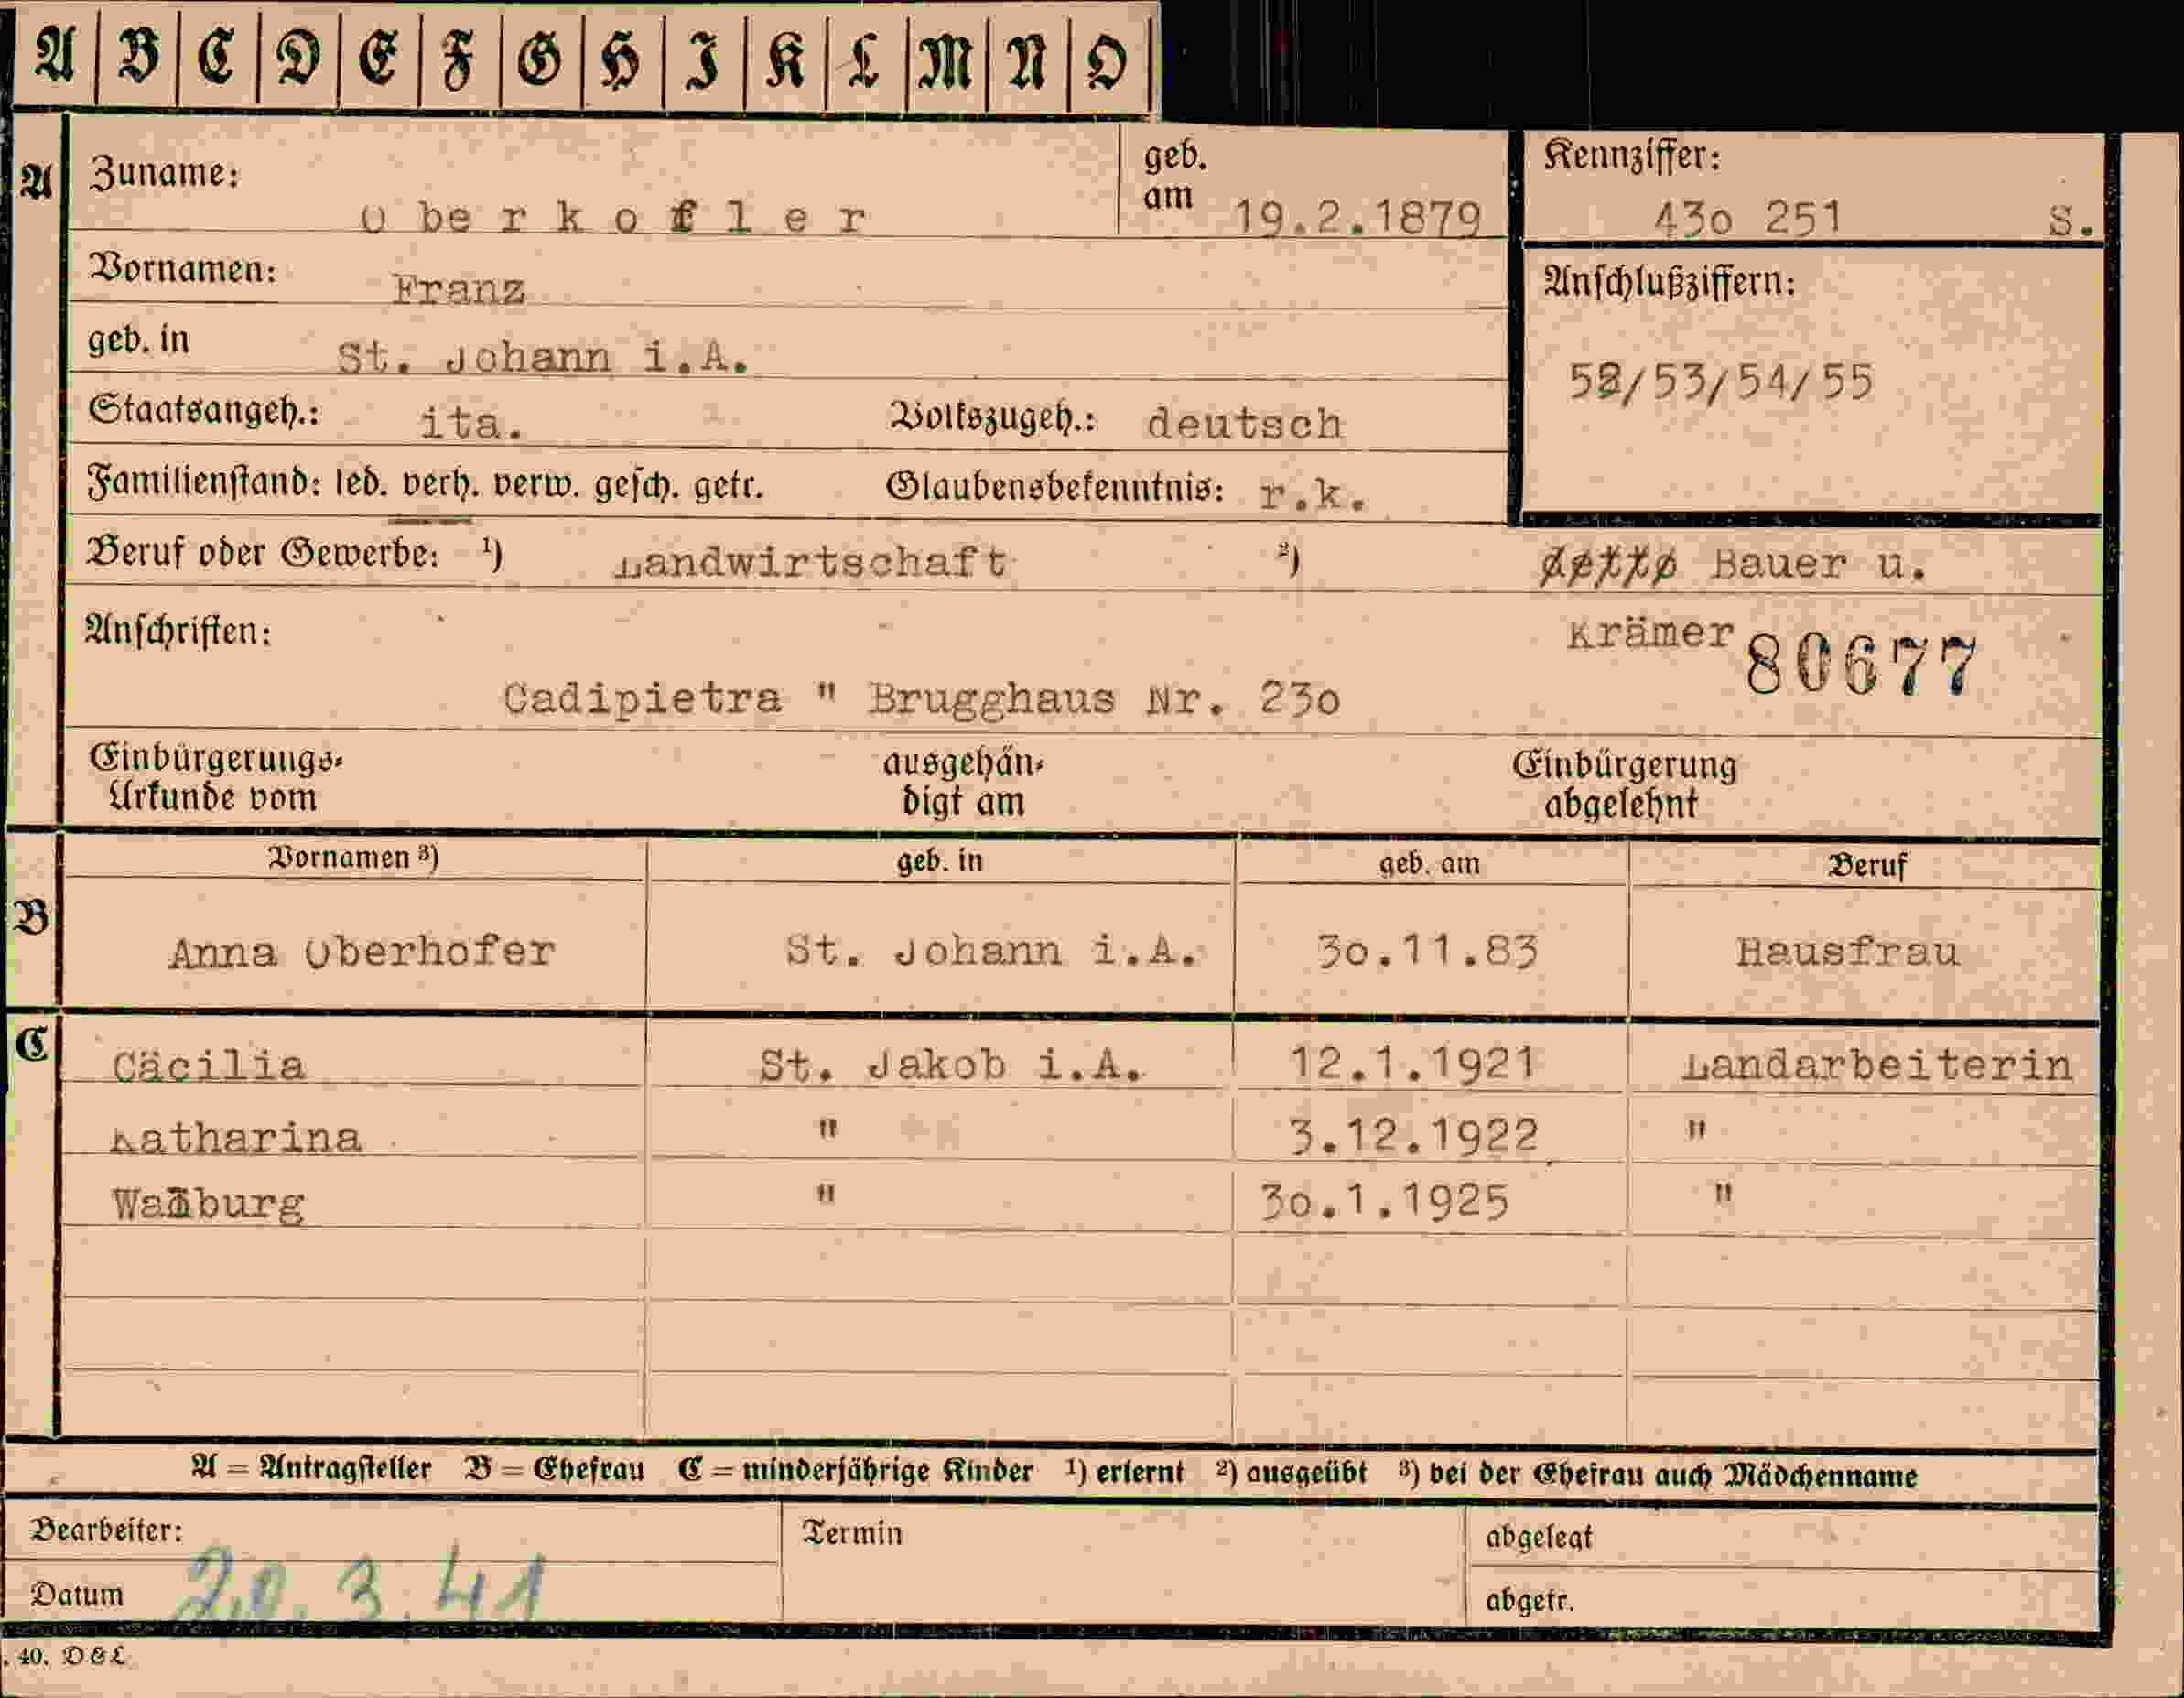 A B C D E F G H I K L M N O
A Zuname: Oberkofler geb. am 19.2.1879 Kennziffer: 43o 251 S.
Vornamen: Franz Anschlußziffern:
geb. in St. Johann i.A. 52/53/54/55
Staatsangeh.: ita. Volkszugeh.: deutsch
Familienstand: led. verh. verw. gesch. getr. Glaubensbekenntnis: r.k.
Beruf oder Gewerbe: ¹) Landwirtschaft ²) Bauer u.
Anschriften: Krämer 80677
Cadipietra " Brugghaus Nr. 23o
Einbürgerungs- ausgehän- Einbürgerung
Urkunde vom digt am abgelehnt
Vornamen ³) geb. in geb. am Beruf
B Anna Oberhofer St. Johann i.A. 3o.11.83 Hausfrau
C Cäcilia St. Jakob i.A. 12.1.1921 Landarbeiterin
Katharina " 3.12.1922 "
Walburg " 3o.1.1925 "
A = Antragsteller B = Ehefrau C = minderjährige Kinder ¹) erlernt ²) ausgeübt ³) bei der Ehefrau auch Mädchenname
Bearbeiter: Termin abgelegt
Datum 20.3.41 abgetr.
. 40. D & L